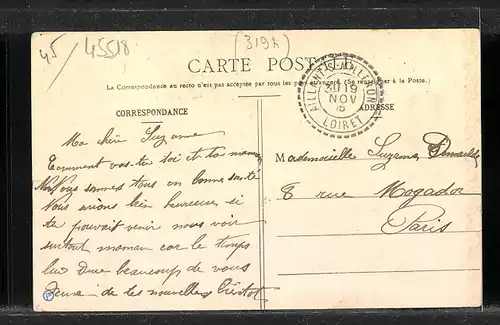 45/45518
(319h)
CARTE POSTALE
La Correspondance au recto n'est pas acceptée par tous les pays étrangers. (Se renseigner à la Poste.)
CORRESPONDANCE
ADRESSE
19
NOV
15
LOIRET
Ma chère Suzanne
Comment vas-tu toi et ta maman
Nous sommes tous en bonne santé
Nous serions bien heureux si
tu pouvait venir nous voir
surtout maman car le temps
lui dure beaucoup de vous
de tes nouvelles
Mademoiselle Suzanne
8 rue Mogador
Paris